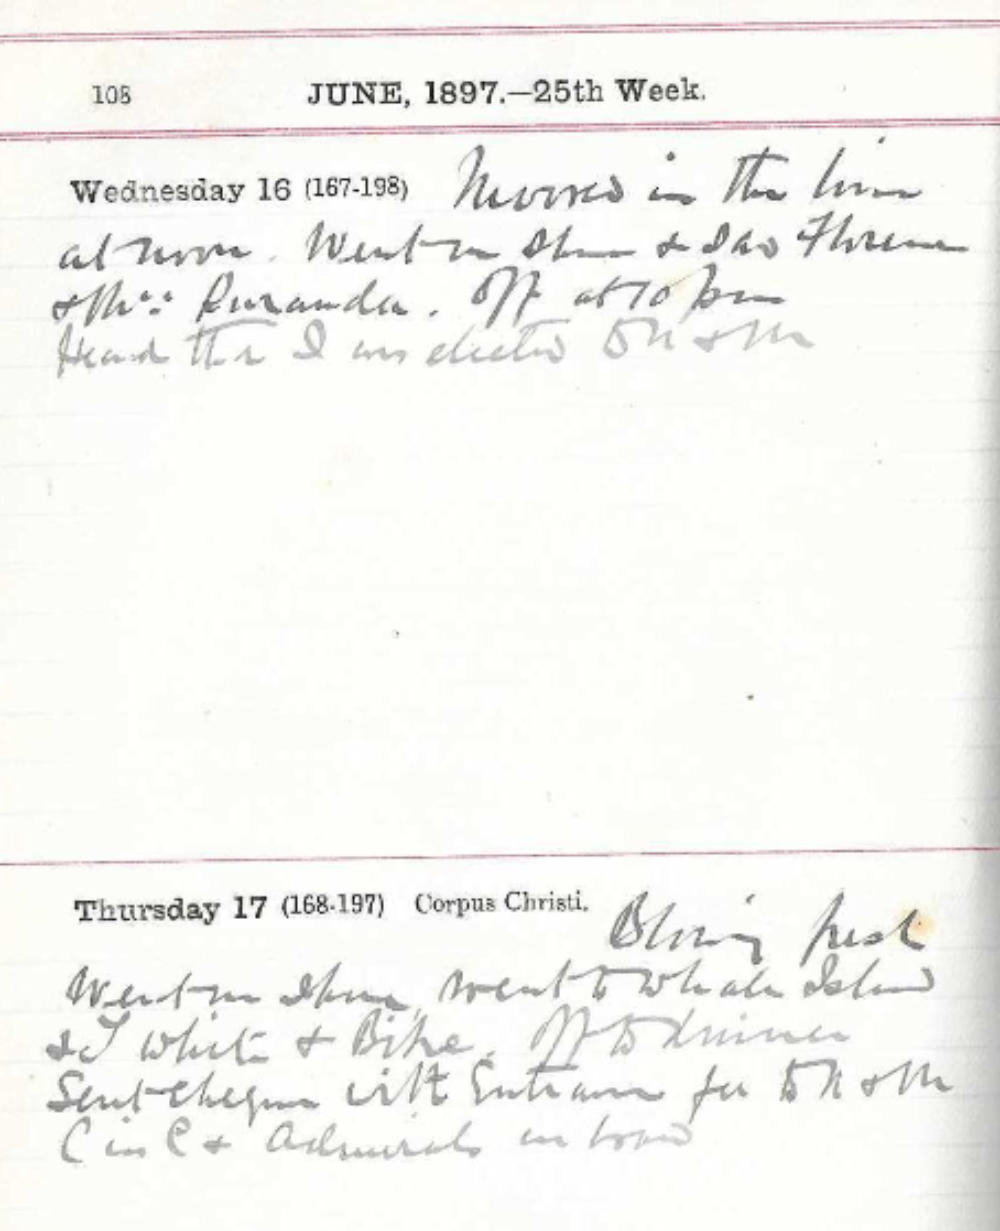 108 JUNE, 1897.—25th Week.
Wednesday 16 (167-198) Moored in the line
at noon. Went on Shore & saw Florence
& Mrs: . Off at 10 pm
Heard tha I was elected to N & M
Thursday 17 (168-197) Corpus Christi. Blowing fresh
Went on Shore, went to Whale Island
& J White & Bike. Off to dinner
Sent cheque with Entrance for to N & M
C in C & Admirals on board